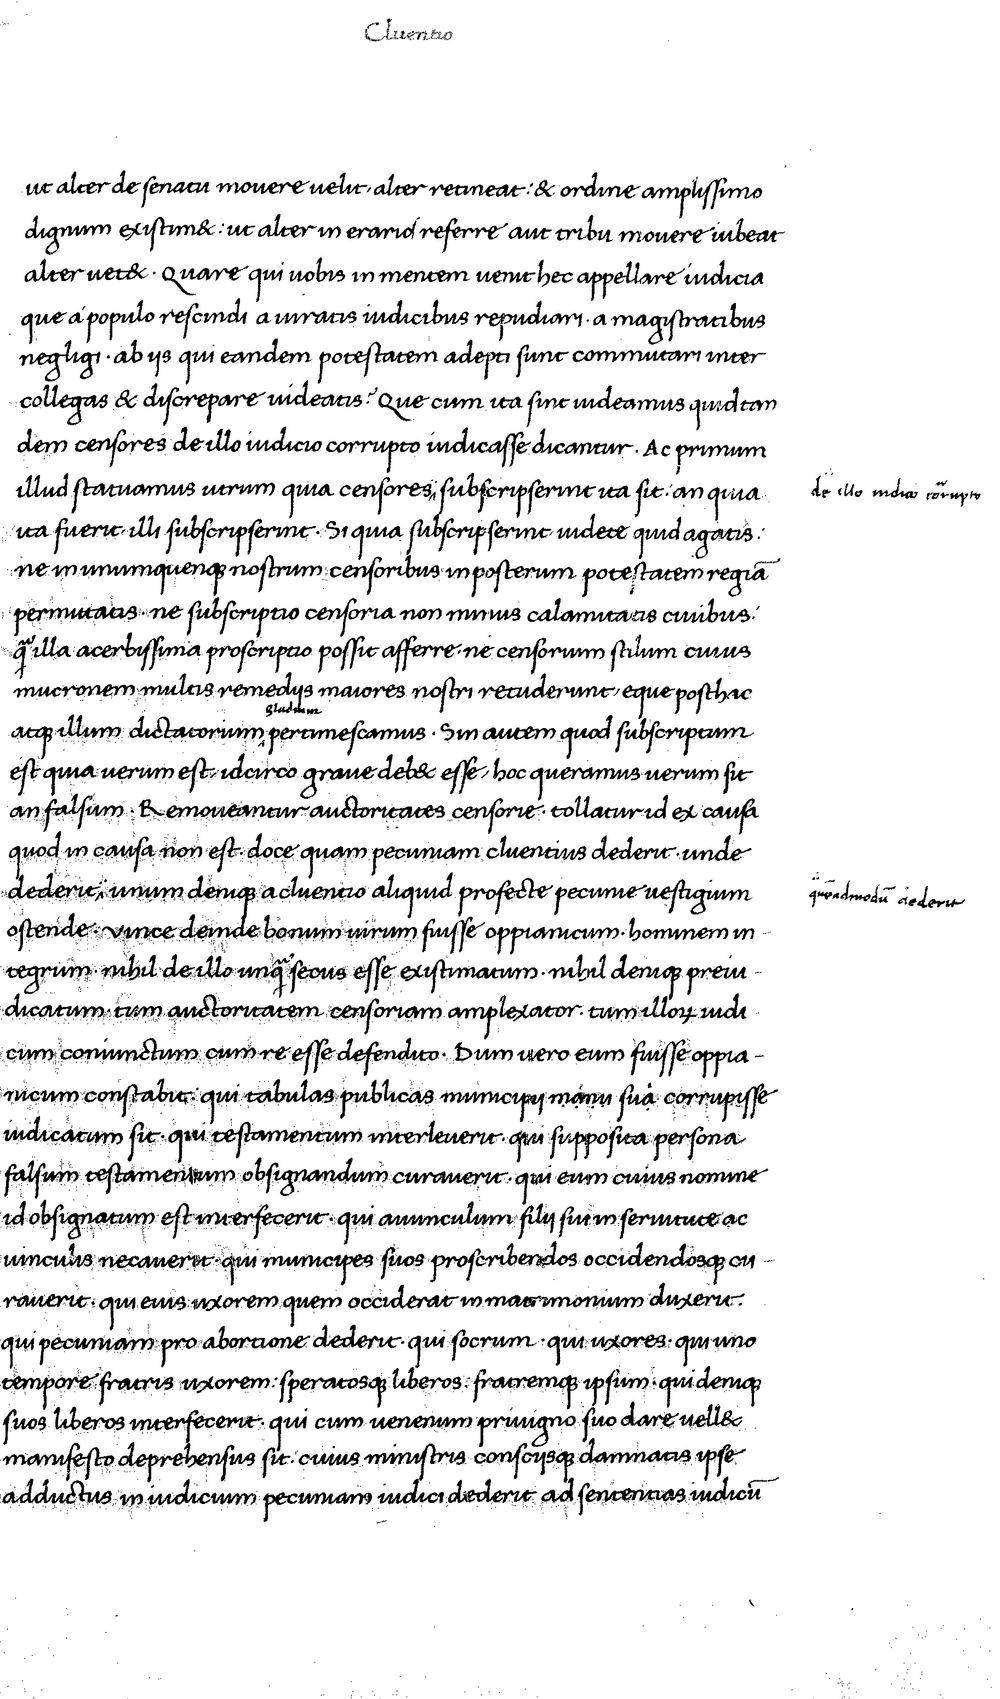 Cluentio
ut alter de senatu mouere uelit· alter retineat: & ordine amplissimo
dignum existim&: ut alter in erariū referre aut tribu mouere iubeat
alter uet&· Quare qui uobis in mentem uenit hec appellare iudicia
que a populo rescindi a iuratis iudicibus repudiari· a magistratibus
negligi· ab ijs qui eandem potestatem adepti sunt commutari inter
collegas & discrepare uideatis? Que cum ita sint uideamus quid tan
dem censores de illo iudicio corrupto iudicasse dicantur· Ac primum
illud statuamus utrum quia censores subscripserint ita sit: an quia
de illo iudicio corrupto
ita fuerit· illi subscripserint· Si quia subscripserint uidete quid agatis:
ne in unumquenq; nostrum censoribus in posterum potestatem regiā
permittatis· ne subscriptio censoria non minus calamitatis ciuibus:
q̄ illa acerbissima proscriptio possit afferre· ne censorium stilum cuius
mucronem multis remedijs maiores nostri retuderunt, eque posthac
gladium
atq; illum dictatorium pertimescamus· Sin autem quod subscriptum
est quia uerum est· idcirco graue deb& esse, hoc queramus uerum sit
an falsum· Remoueantur auctoritates censorie· tollatur id ex causa
quod in causa non est· doce quam pecuniam cluentius dederit· unde
dederit, unum deniq; a cluentio aliquid profecte pecunie uestigium
quēadmodū dederit
ostende· Vince deinde bonum uirum fuisse oppianicum· hominem in
tegrum· nihil de illo unq̄ secus esse existimatum· nihil deniq; preiu-
dicatum· tum auctoritatem censoriam amplexator· tum illoꝝ iudi
cium coniunctum cum re esse defendito· Dum uero eum fuisse oppia-
nicum constabit: qui tabulas publicas municipij manu sua corrupisse
iudicatum sit· qui testamentum interleuerit· qui supposita persona
falsum testamentum obsignandum curauerit· qui eum cuius nomine
id obsignatum est interfecerit· qui auunculum filij sui in seruitute ac
uinculis necauerit· qui municipes suos proscribendos occidendosq; cu-
rauerit· qui eius uxorem quem occiderat in matrimonium duxerit:
qui pecuniam pro abortione dederit· qui socrum· qui uxores· qui uno
tempore fratris uxorem: speratosq; liberos: fratremq; ipsum· qui deniq;
suos liberos interfecerit· qui cum uenenum priuigno suo dare uell&
manifesto deprehensus sit· cuius ministris conscijsq; damnatis ipse
adductus in iudicium pecuniam iudici dederit ad sententias iudicū